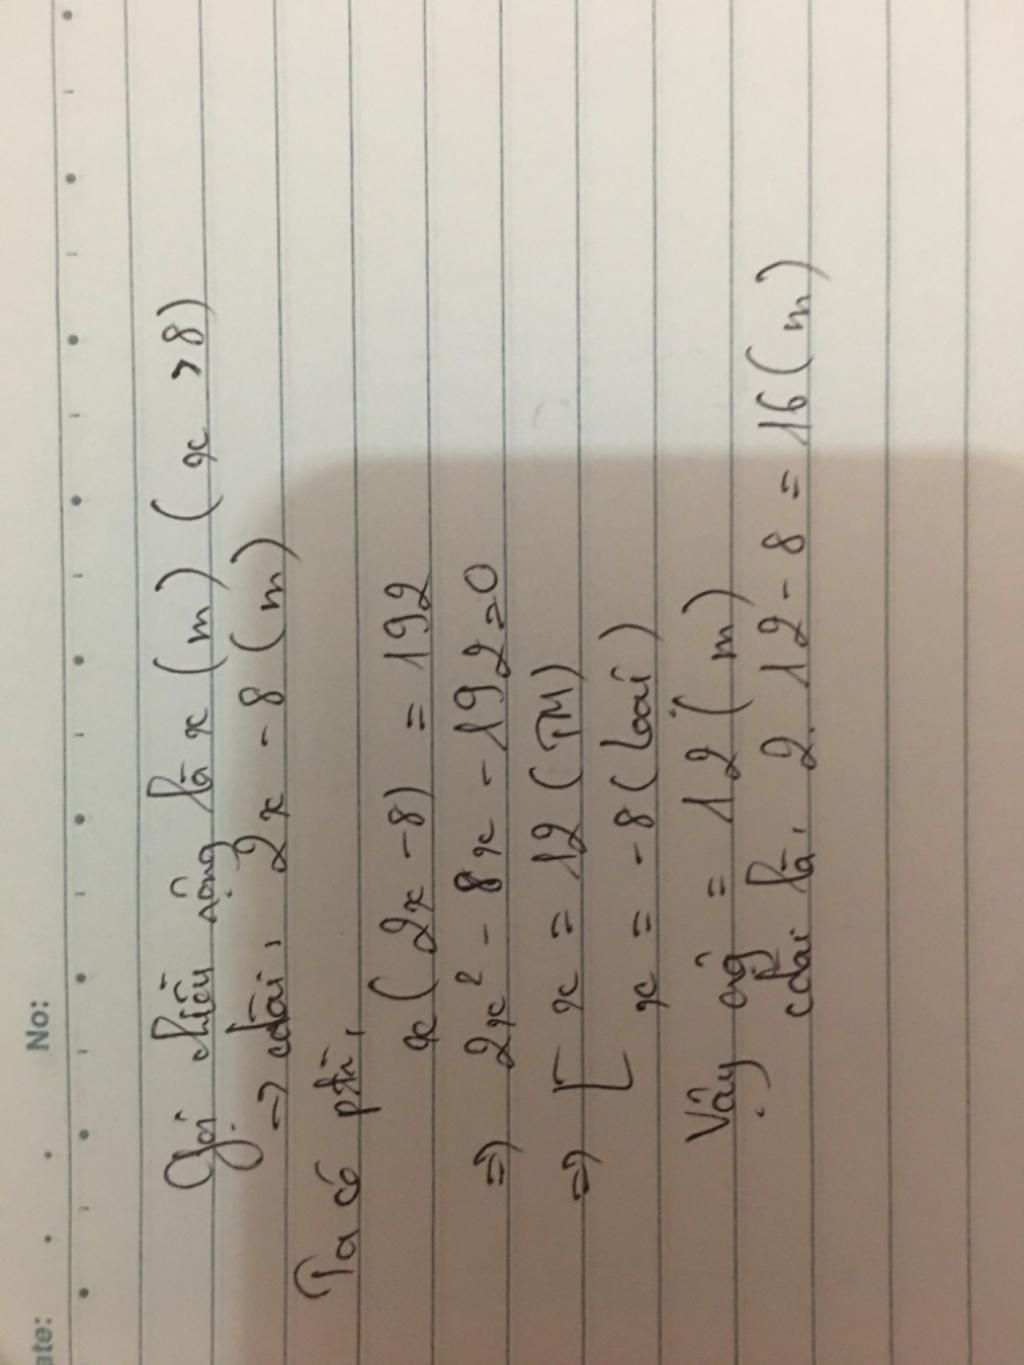 No:
ate:
Gọi chiều rộng là x (m) ( x > 8)
=> cdài: 2x - 8 (m)
Ta có ptr:
x(2x - 8) = 192
=> 2x² - 8x - 192 = 0
=> [ x = 12 (TM)
x = -8 (loại)
Vậy = 12 (m)
cdài là: 2. 12 - 8 = 16 (m)